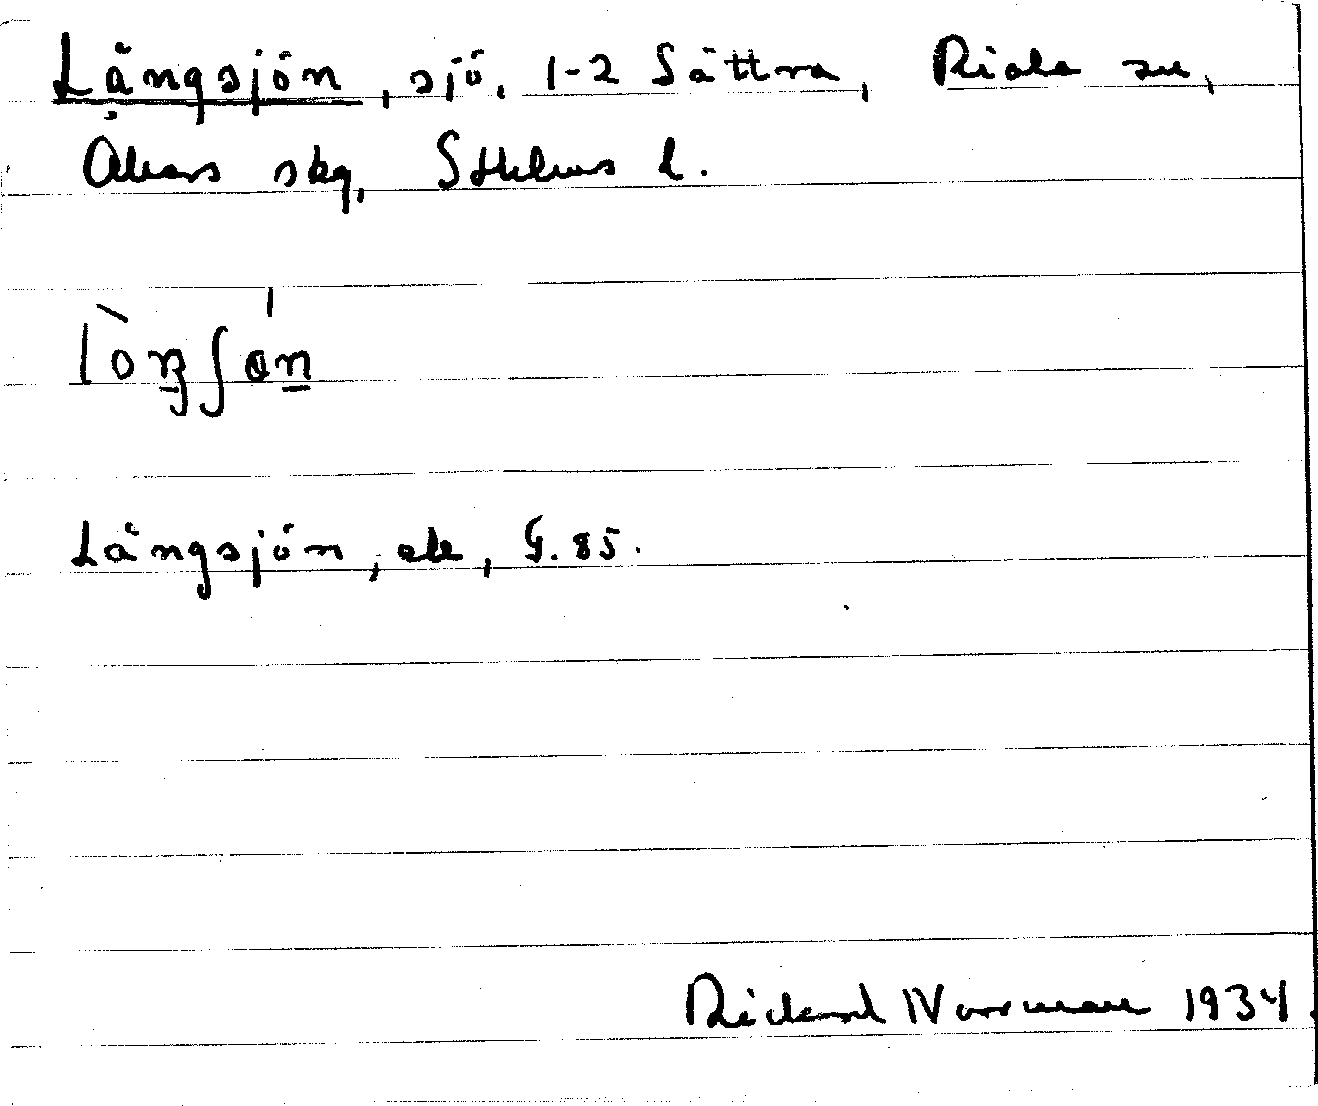 Långsjön, sjö, 1-2 Sättra, Riala sn,
Åkers skg, Sthlms l.
Långsjön, ek, G. 85.
Rickard Norrman 1934.